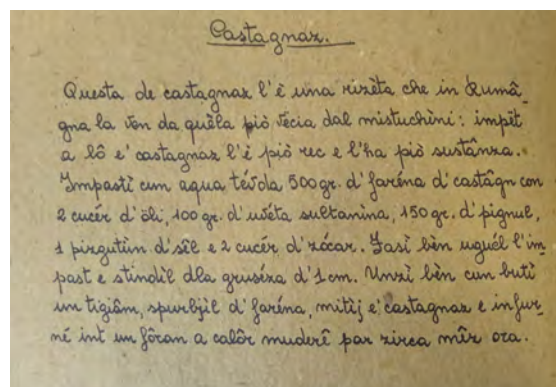 Castagnaz.
Questa de castagnaz l'è una rizèta che in Rumâ-
gna la ven da quèla piò vècia dal mistuchèni: impët
a lô e' castagnaz l'è piò rec e l'ha piò sustânza.
Impastì cum aqua tévda 500 gr. d'faréna d'castâgn con
2 cucér d'öli, 100 gr. d'uvéta sultanina, 150 gr. d'pignul,
1 pizgutùn d'sêl e 2 cucér d'zócar. Fasì bèn uguél l'im-
past e stindìl dla gruséza d'1 cm. Unzì bèn cun butì
un tigiâm, spurbjìl d'faréna, mitìj e' castagnaz e infur-
né int un fóran a calôr muderê par zirca mêz ora.